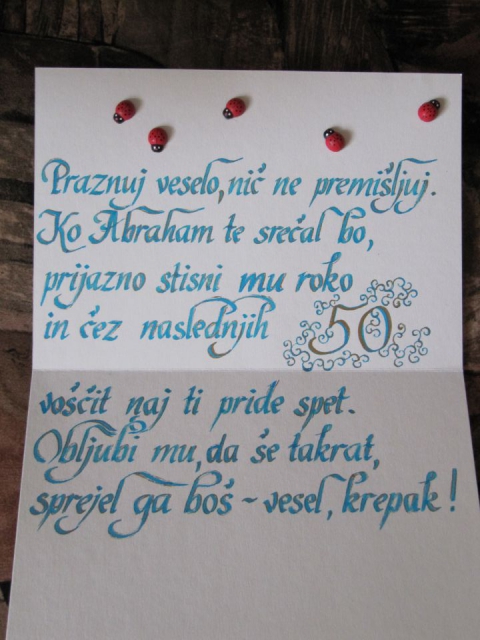 Praznuj veselo, nič ne premišljuj.
Ko Abraham te srečal bo,
prijazno stisni mu roko
in čez naslednjih 50
voščit naj ti pride spet.
Obljubi mu, da še takrat,
sprejel ga boš ~ vesel, krepak!